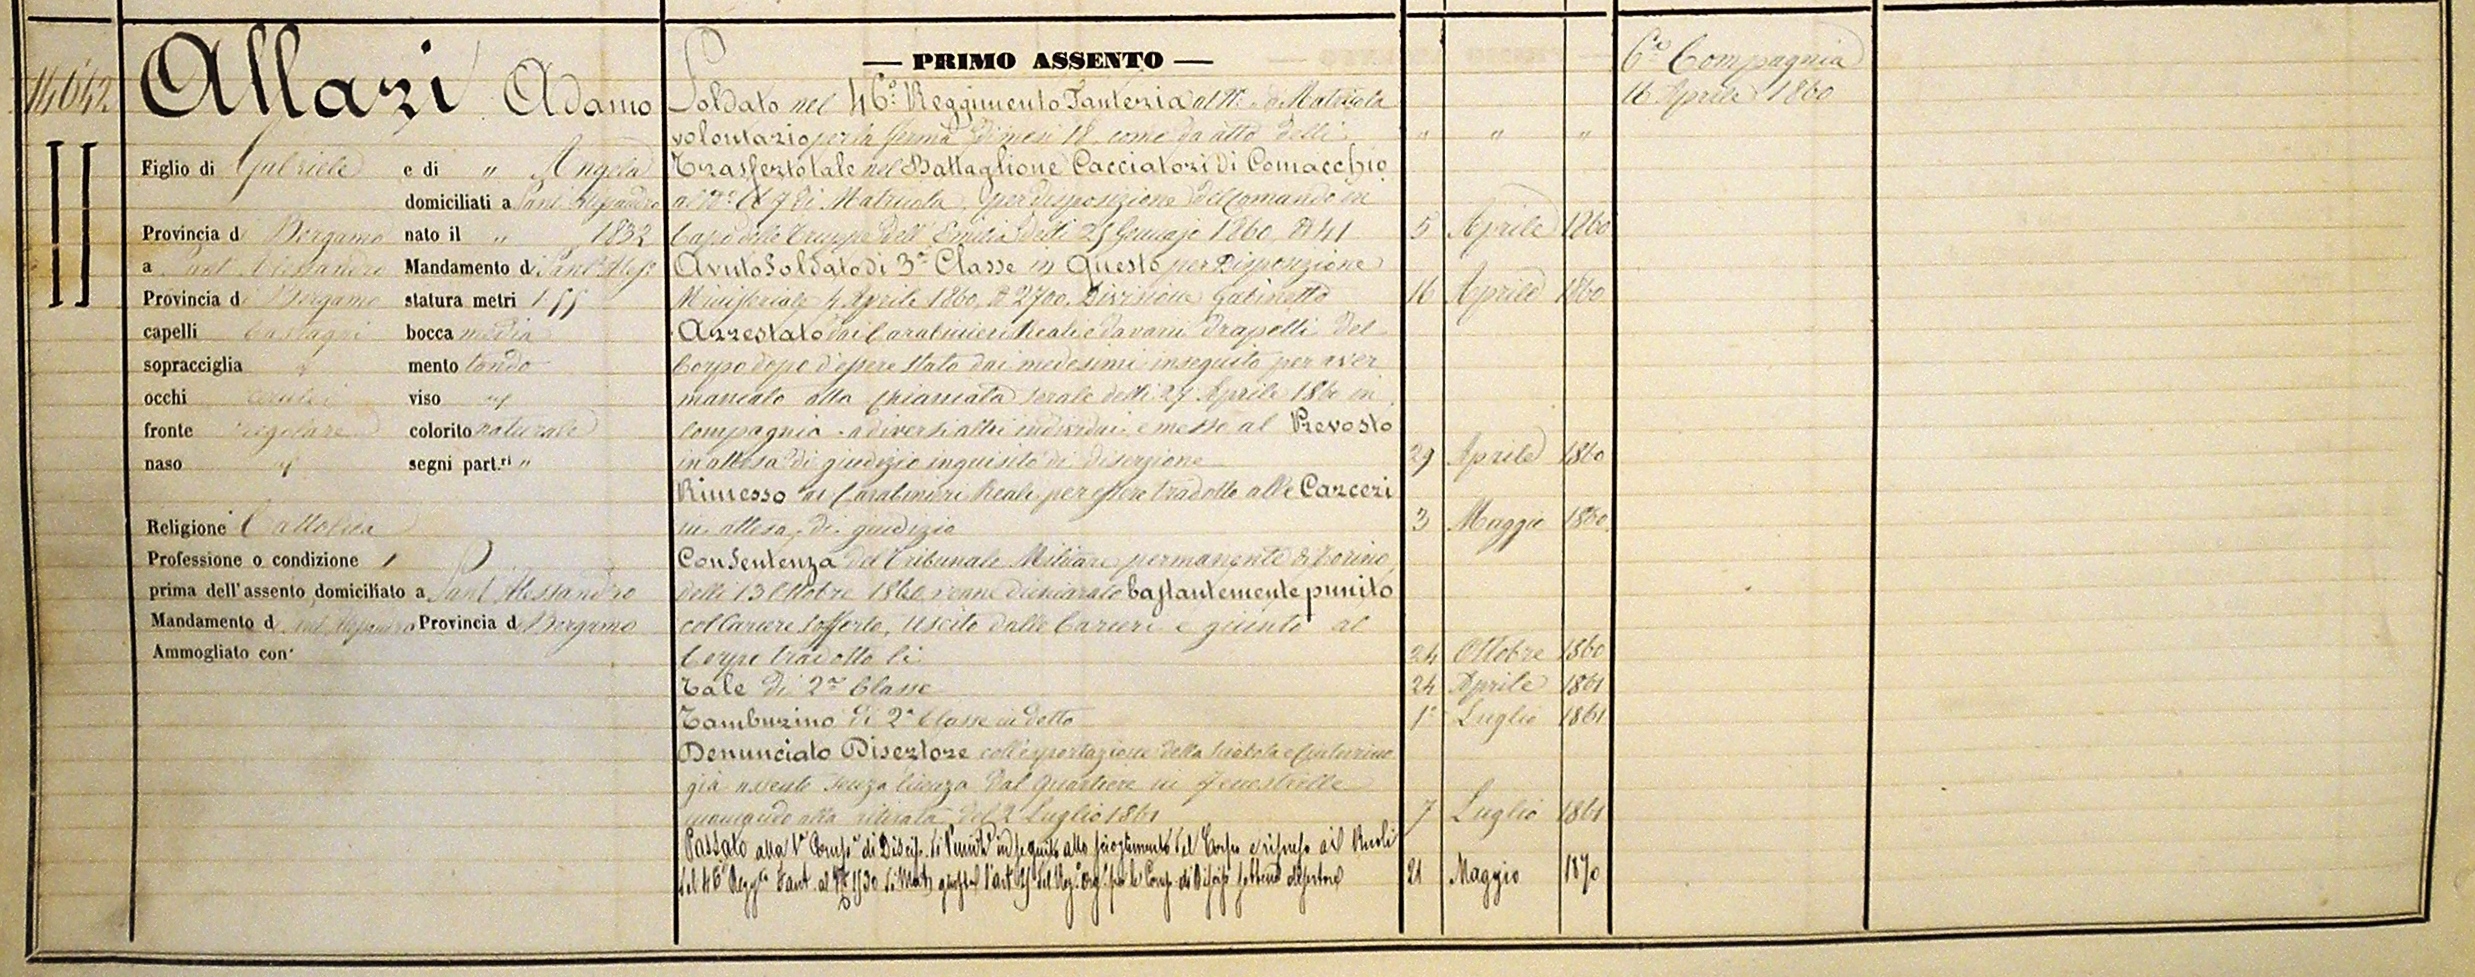 14642
Allari Adamo
II
Figlio di Gabriele e di " Angela
domiciliati a Sant'Alessandro
Provincia di Bergamo nato il " 1832
a Sant'Alessandro Mandamento di Sant'Aless.
Provincia di Bergamo statura metri 1.55
capelli castagni bocca media
sopracciglia mento tondo
occhi cerulei viso
fronte regolare colorito naturale
naso segni part.ri "
Religione Cattolica
Professione o condizione
prima dell'assento domiciliato a Sant'Alessandro
Mandamento di Sant'Alessandro Provincia di Bergamo
Ammogliato con
— PRIMO ASSENTO —
Soldato nel 46° Reggimento Fanteria al N° di Matricola
volontario per la ferma di mesi 18 come da atto delli " " "
Trasferto tale nel Battaglione Cacciatori di Comacchio
al N° di Matricola per disposizione del Comando in
Capo delle Truppe dell'Emilia delli 25 Gennajo 1860 N° 41 5 Aprile 1860
Avuto Soldato di 3a Classe in questo per Disposizione
Ministeriale 4 Aprile 1860, N° 2700. Divisione Gabinetto 16 Aprile 1860
Arrestato dai Carabinieri Reali e da varii drapelli del
Corpo dopo d'essere stato dai medesimi inseguito per aver
mancato alla chiamata serale delli 27 Aprile 1860 in
compagnia a diversi altri individui e messo al Prevosto
in attesa di giudizio inquisito di diserzione 29 Aprile 1860
Rimesso ai Carabinieri Reali per essere tradotto alle Carceri
in attesa di giudizio 3 Maggio 1860
Con Sentenza del Tribunale Militare permanente di Torino
delli 13 Ottobre 1860 venne dichiarato bastantemente punito
col Carcere sofferto, uscito dalle Carceri e giunto al
Corpo tradotto li 24 Ottobre 1860
Tale di 2a Classe 24 Aprile 1861
Tamburino di 2a Classe in detto 1° Luglio 1861
Denunciato Disertore coll'esportazione della sciabola e Centurino
già assente senza licenza dal Quartiere in Fenestrelle
mancando alla ritirata del 2 Luglio 1861 7 Luglio 1861
Passato alla 1a Comp.a di Discip. di Punit. in seguito allo scioglimento del Corpo e ai Ruoli
del 46° Regg.to Fant. al N° 1530 di Mat. l'art. del Reg. org. per le Comp. di Discip. disertore 21 Maggio 1870
6a Compagnia
16 Aprile 1860